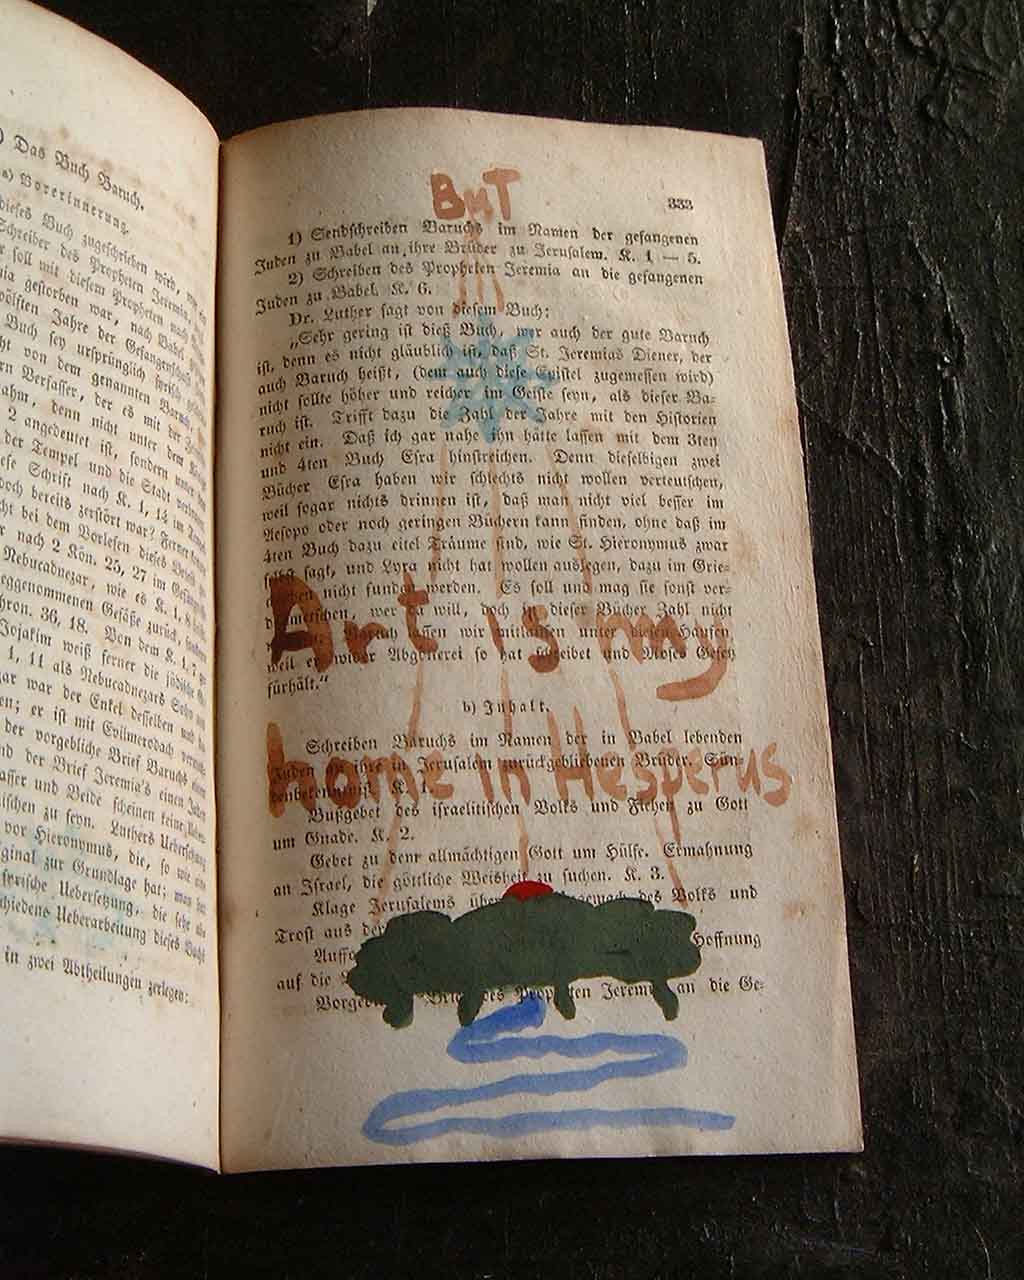 ) Das Buch Baruch.
a) Vorerinnerung.
dieses Buch zugeschrieben wird,
Schreiber des Propheten Jeremia,
soll mit diesem Propheten nach
gestorben war, nach Babel
zwölften Jahre der Gefangenschaft
Buch sey ursprünglich syrisch
von dem genannten Baruch,
Verfasser, der es mit der
denn nicht unter dem
2 angedeutet ist, sondern unter
der Tempel und die Stadt
Schrift nach K. 1, 14 im
doch bereits zerstört war? Ferner
bei dem Vorlesen dieses
nach 2 Kön. 25, 27 im
Nebucadnezar, wie es K. 1, 8
weggenommenen Gefäße zurück, sondern
Chron. 36, 18. Von dem K. 1, 7
Jojakim weiß ferner die jüdische
1, 11 als Nebucadnezars Sohn
war der Enkel desselben und
er ist mit Evilmerodach
der vorgebliche Brief Baruchs
und der Brief Jeremia's einen
und Beide scheinen keine
zu seyn. Luthers Uebersetzung
vor Hieronymus, die, so wie
zur Grundlage hat; man hat
syrische Uebersetzung, die sehr
Ueberarbeitung dieses Buchs
in zwei Abtheilungen zerlegen:
But
333
1) Sendschreiben Baruchs im Namen der gefangenen
Juden zu Babel an ihre Brüder zu Jerusalem. K. 1 — 5.
2) Schreiben des Propheten Jeremia an die gefangenen
Juden zu Babel. K. 6.
Dr. Luther sagt von diesem Buch:
„Sehr gering ist dieß Buch, wer auch der gute Baruch
ist, denn es nicht gläublich ist, daß St. Jeremias Diener, der
auch Baruch heißt, (dem auch diese Epistel zugemessen wird)
nicht sollte höher und reicher im Geiste seyn, als dieser Ba-
ruch ist. Trifft dazu die Zahl der Jahre mit den Historien
nicht ein. Daß ich gar nahe ihn hätte lassen mit dem 3ten
und 4ten Buch Esra hinstreichen. Denn dieselbigen zwei
Bücher Esra haben wir schlechts nicht wollen verteutschen,
weil sogar nichts drinnen ist, daß man nicht viel besser im
Aesopo oder noch geringen Büchern kann finden, ohne daß im
4ten Buch dazu eitel Träume sind, wie St. Hieronymus zwar
selbst sagt, und Lyra nicht hat wollen auslegen, dazu im Grie-
chischen nicht funden werden. Es soll und mag sie sonst ver-
dolmetschen, wer da will, doch in dieser Bücher Zahl nicht
Baruch lassen wir mitlaufen unter diesen Haufen,
weil er wider Abgötterei so hat schreibet und Moses Gesetz
fürhält.“
Art is my
b) Inhalt.
Schreiben Baruchs im Namen der in Babel lebenden
Juden an ihre in Jerusalem zurückgebliebenen Brüder. Sün-
denbekenntniß. K. 1.
home in Hesperus
Bußgebet des israelitischen Volks und Flehen zu Gott
um Gnade. K. 2.
Gebet zu dem allmächtigen Gott um Hülfe. Ermahnung
an Israel, die göttliche Weisheit zu suchen. K. 3.
Klage Jerusalems über des Volks und
Trost aus der
Hoffnung
auf die
des Propheten Jeremia an die Ge-